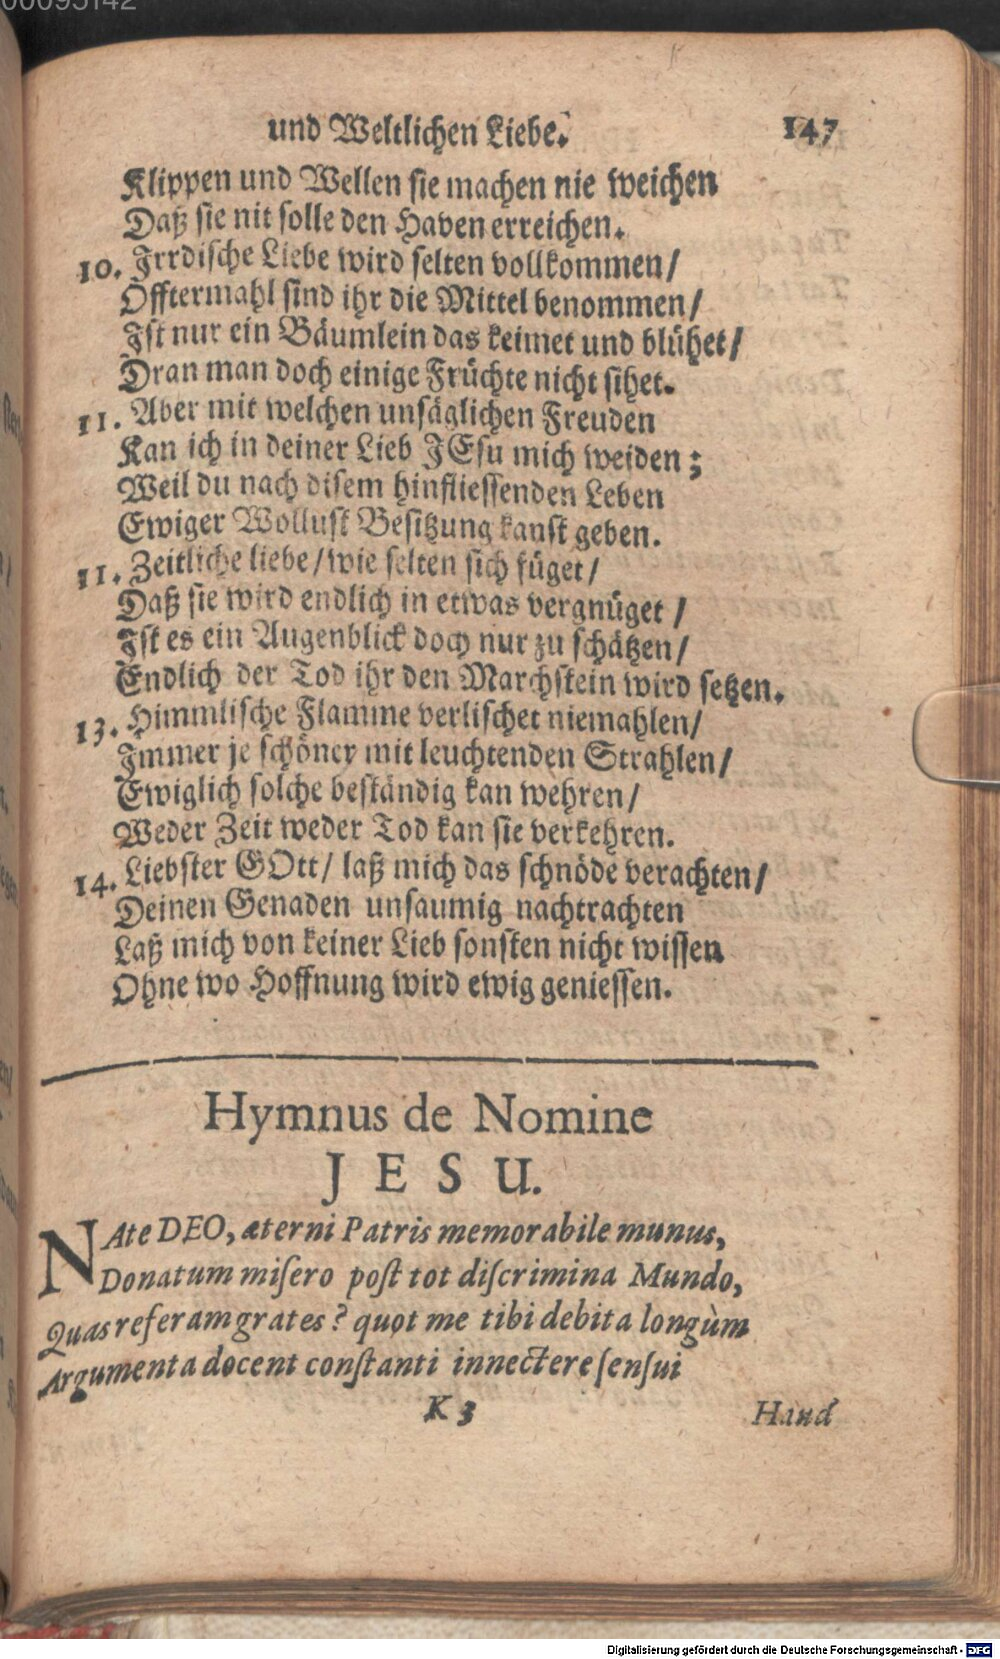 00095142
und Weltlichen Liebe. 147
Klippen und Wellen sie machen nie weichen
Daß sie nit solle den Haven erreichen.
10. Irrdische Liebe wird selten vollkommen/
Öfftermahl sind ihr die Mittel benommen/
Ist nur ein Bäumlein das keimet und blühet/
Dran man doch einige Früchte nicht sihet.
11. Aber mit welchen unsäglichen Freuden
Kan ich in deiner Lieb JEsu mich weiden;
Weil du nach disem hinfliessenden Leben
Ewiger Wollust Besitzung kanst geben.
11. Zeitliche liebe/ wie selten sich füget/
Daß sie wird endlich in etwas vergnüget/
Ist es ein Augenblick doch nur zu schätzen/
Endlich der Tod ihr den Marchstein wird setzen.
13. Himmlische Flamme verlischet niemahlen/
Immer je schöner mit leuchtenden Strahlen/
Ewiglich solche beständig kan wehren/
Weder Zeit weder Tod kan sie verkehren.
14. Liebster GOtt/ laß mich das schnöde verachten/
Deinen Genaden unsaumig nachtrachten
Laß mich von keiner Lieb sonsten nicht wissen
Ohne wo Hoffnung wird ewig geniessen.
Hymnus de Nomine
JESU.
NAte DEO, æterni Patris memorabile munus,
Donatum misero post tot discrimina Mundo,
Quas referam grates? quot me tibi debita longùm
Argumenta docent constanti innectere sensui
K 3 Haud
Digitalisierung gefördert durch die Deutsche Forschungsgemeinschaft - DFG